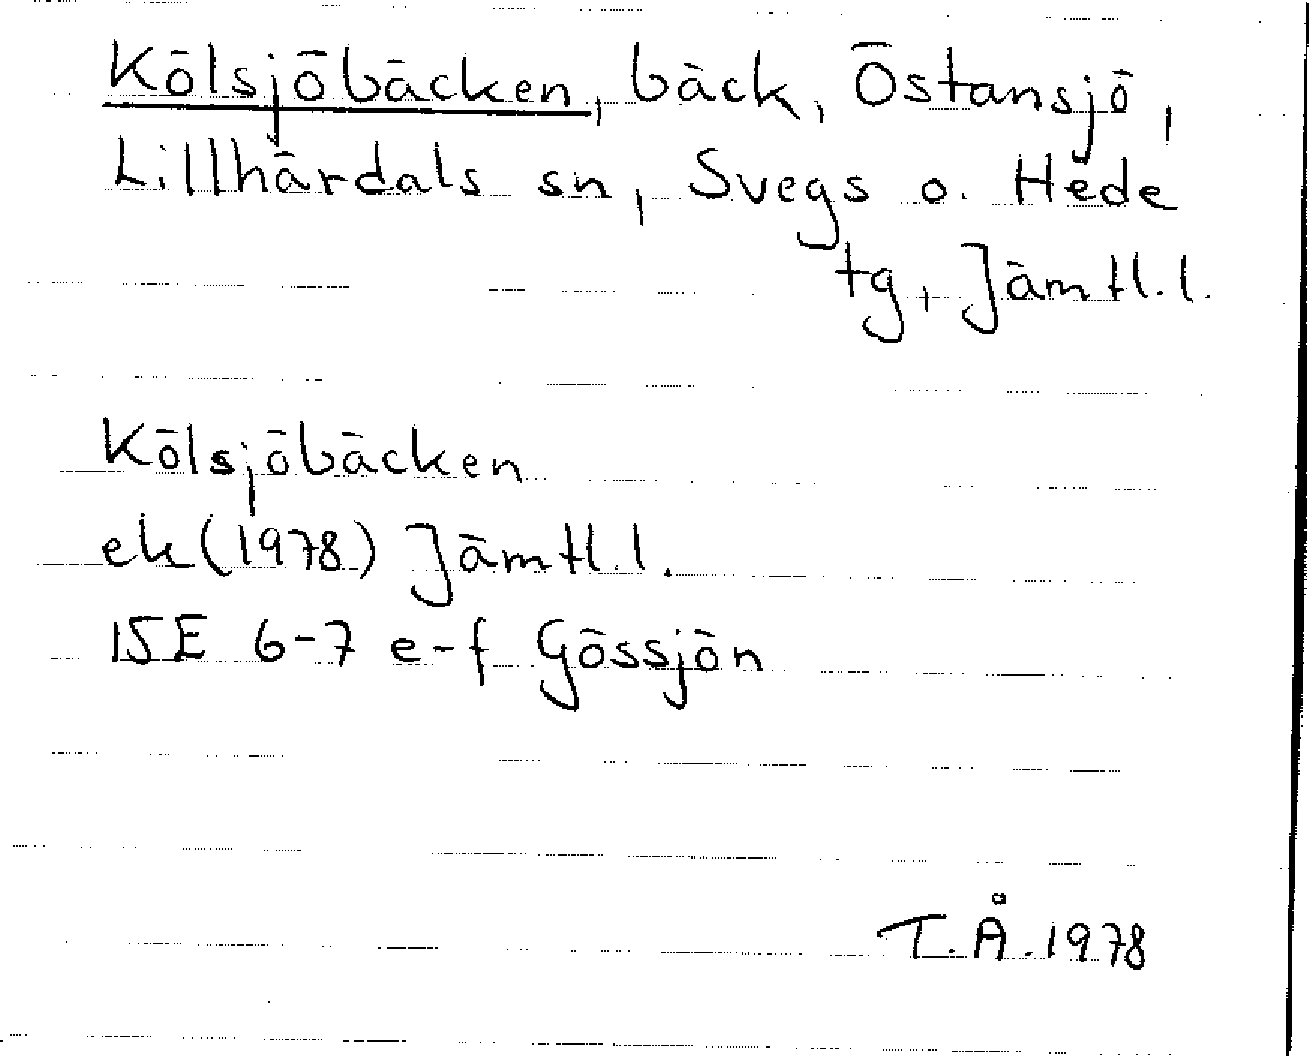 Kölsjöbäcken, bäck, Östansjö,
Lillhärdals sn, Svegs o. Hede
tg, Jämtl.l.
Kölsjöbäcken
ek (1978) Jämtl.l.
15E 6-7 e-f Gössjön
T.Å.1978